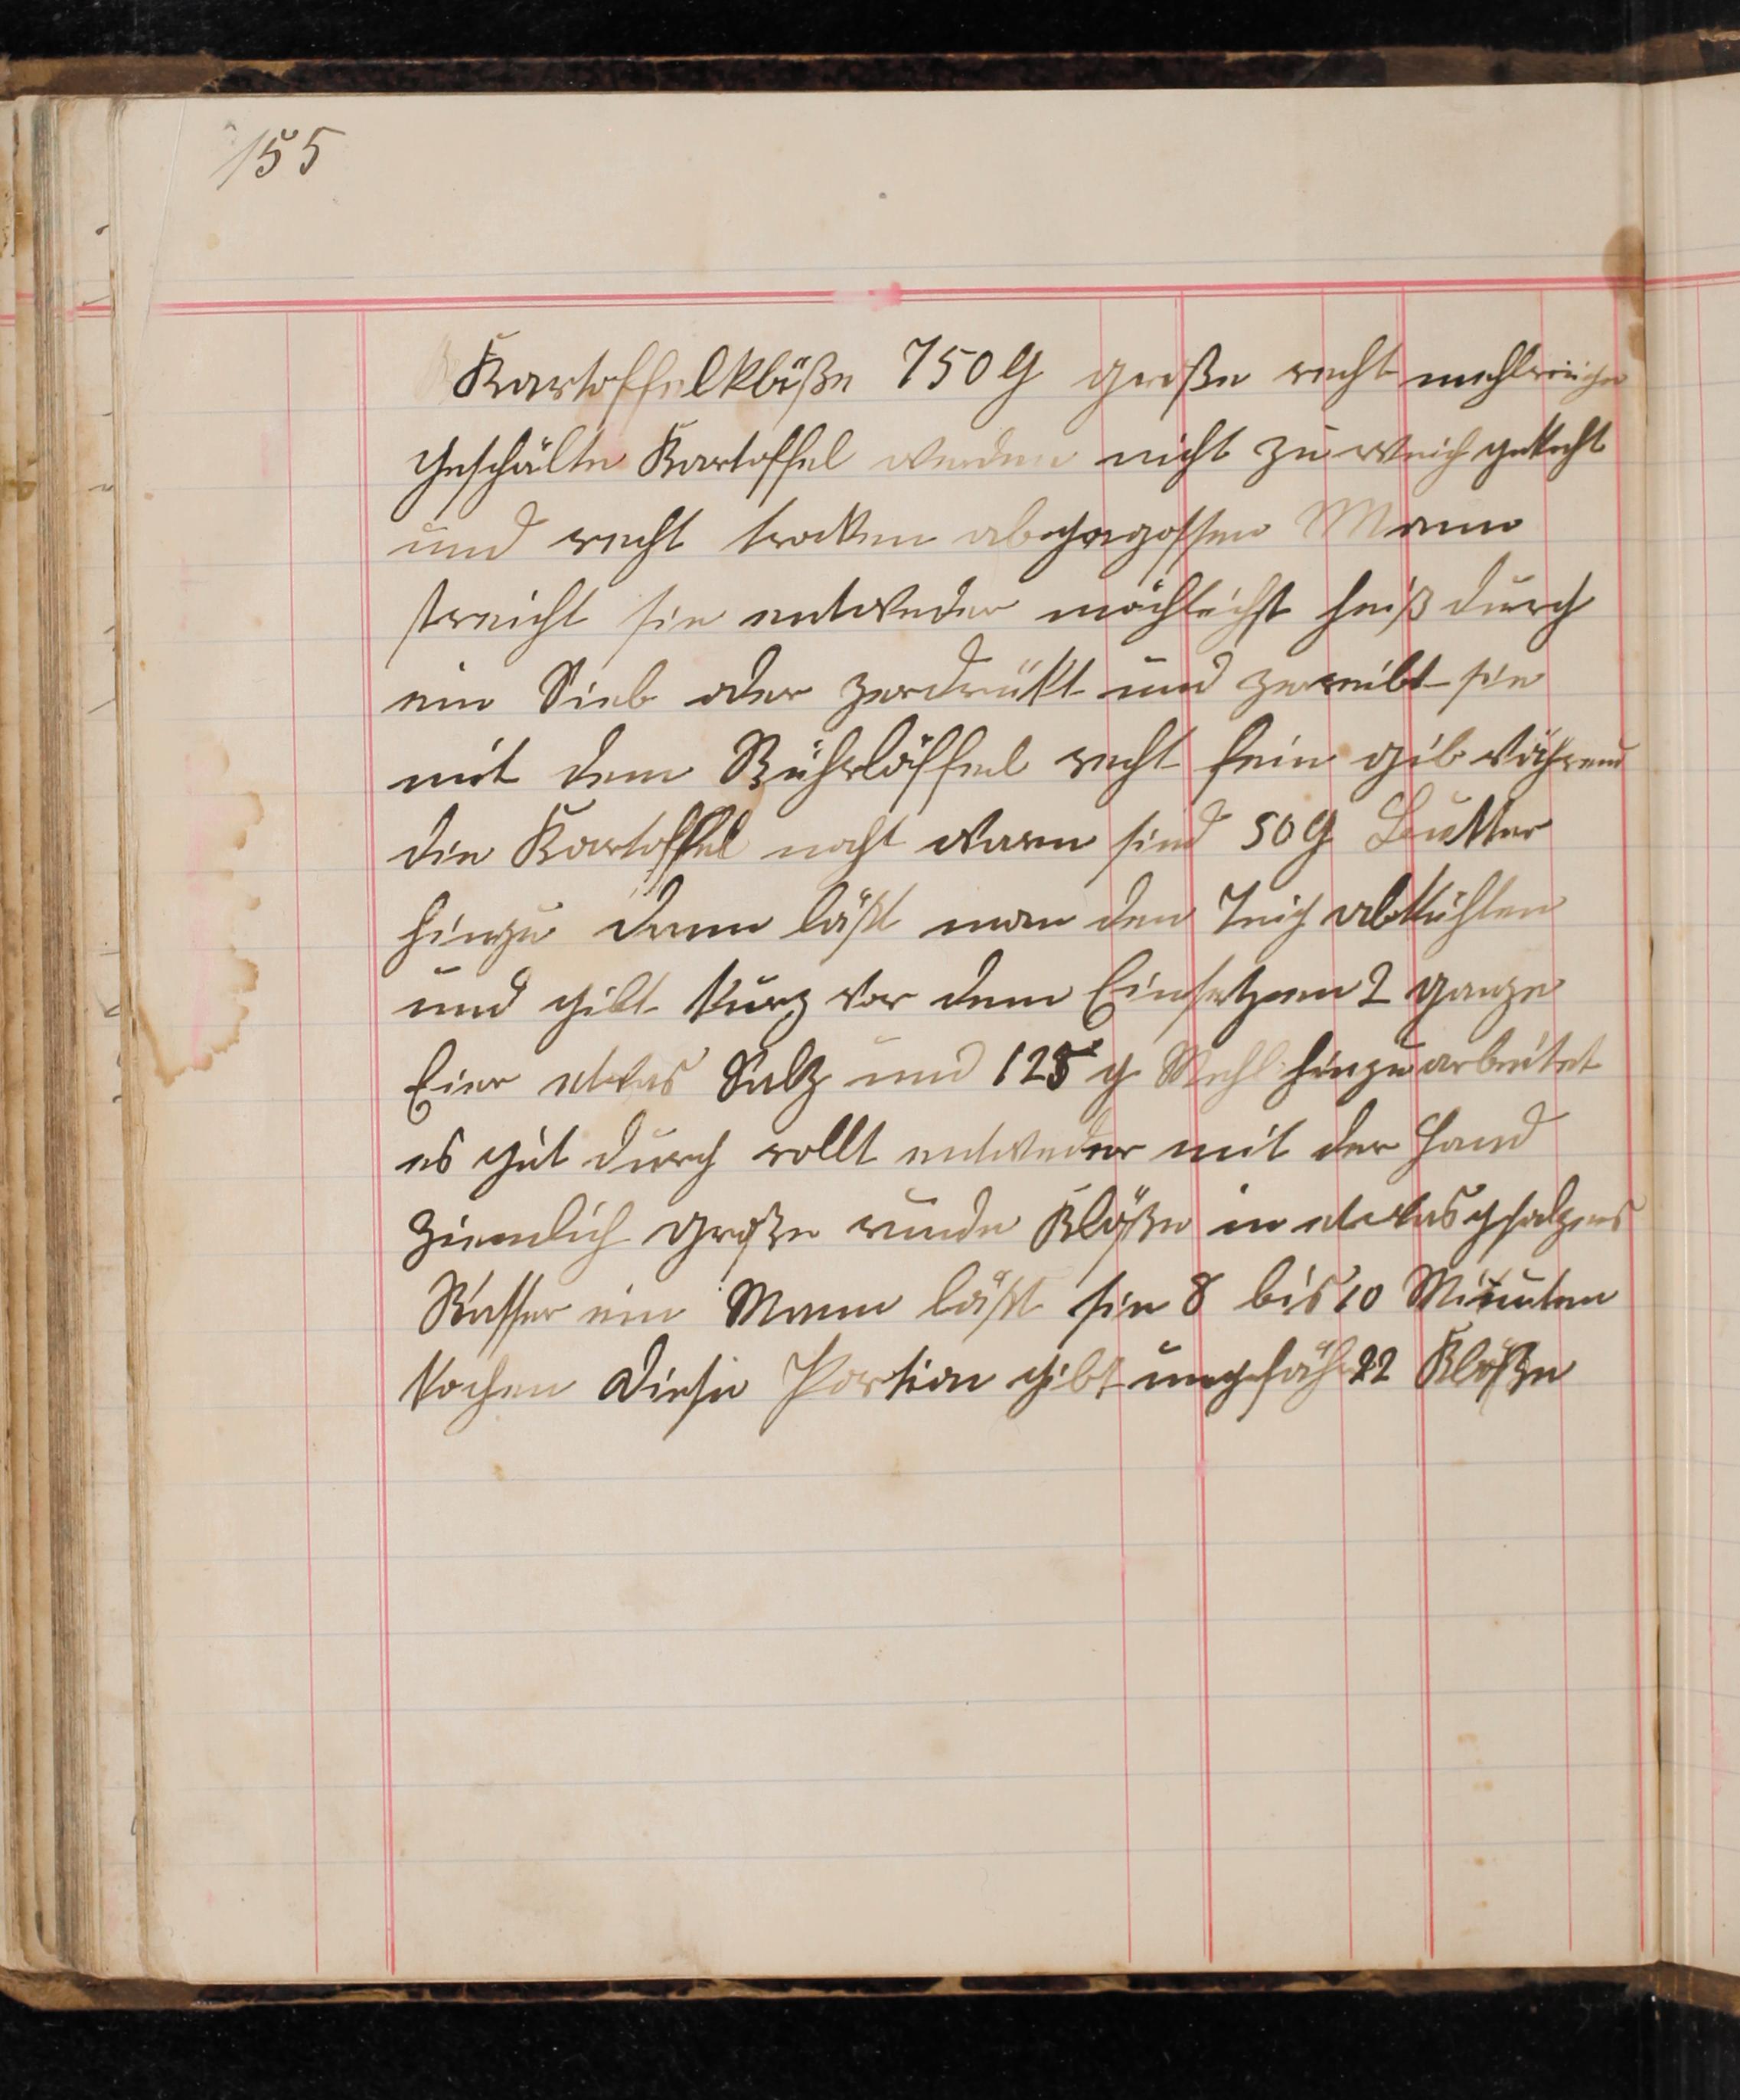 155
Kartoffelklöße 750 g große recht mehlreiche
geschälte Kartoffel werden nicht zu weich gekocht
und recht trocken abgegossen Mann
streicht sie entweder möchleichst heiß durch
ein Sieb oder zerdrükt und zerreibt sie
mit dem Rührlöffel recht fein gib während
die Kartoffel noch warm sind 50 g Butter
hinzu dann läßt man den Teig abkühlen
und gibt kurz vor dem Einsetzen 2 ganze
Eier etwas Salz und 125 g Mehl hinzu arbeitet
es gut durch rollt entweder mit der Hand
ziemlich große runde Klöße in etwas gsalzens
Wasser ein Mann läßt sie 8 bis 10 Minuten
kochen Diese Portion gibt ungefähr 22 Klöße